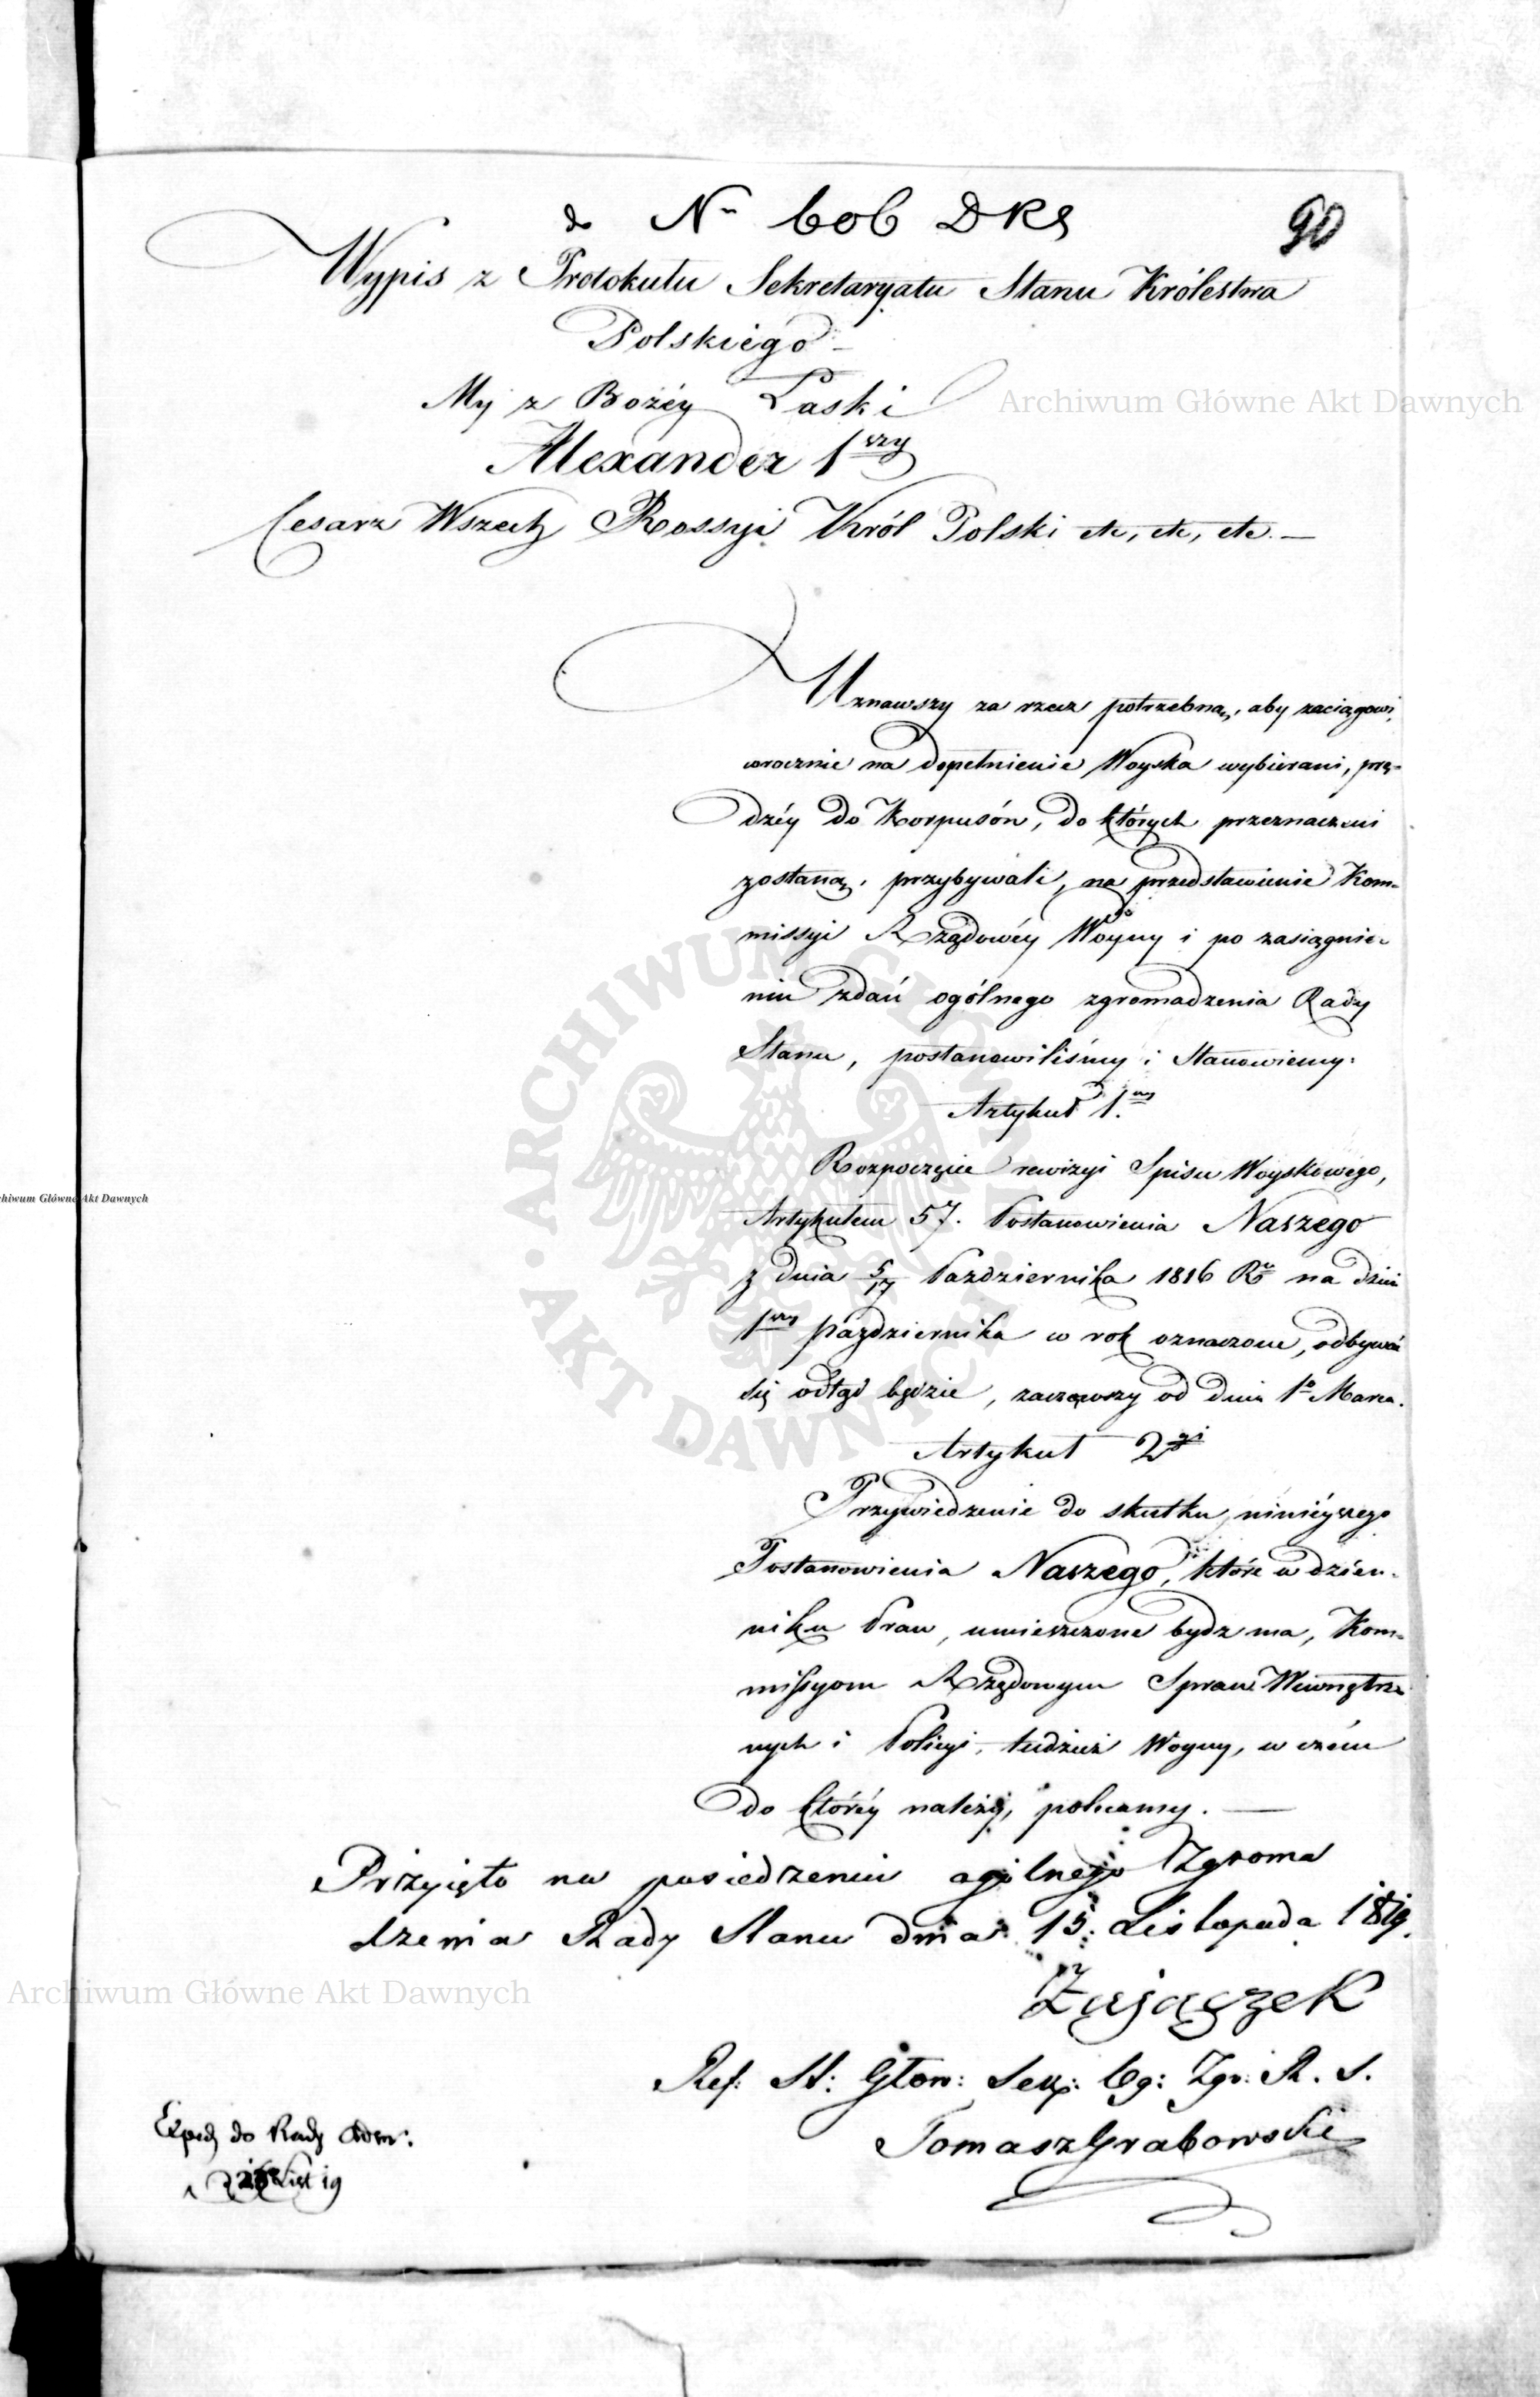 do Nro 606 DKS
90
Wypis z Protokułu Sekretaryatu Stanu Królestwa
Polskiego
My z Bożéy Łaski
Alexander 1szy
Cesarz Wszech Rossyi Król Polski etc, etc, etc. —
Archiwum Główne Akt Dawnych
Uznawszy za rzecz potrzebną, aby zaciągowi,
corocznie na dopełnienie Woyska wybierani, prę-
dzéy do Korpusón, do których przeznaczeni
zostaną, przybywali, na przedstawienie Kom-
missyi Rządowéy Woyny i po zasiągnie-
niu zdań ogólnego zgromadzenia Rady
Stanu, postanowiliśmy i Stanowiemy:
Artykuł 1.wszy
Rozpoczęcie rewizyi Spisu Woyskowego,
Artykułem 57. Postanowienia Naszego
z dnia 5/17 Października 1816 Ru na dzień
1wszy października w rok oznaczone, odbywać
się odtąd będzie, zacząwszy od dnia 1o Marca.
Artykuł 2gi
Przywiedzenie do skutku, ninieyszego
Postanowienia Naszego, które w dzien-
niku Praw, umieszczone bydz ma, Kom-
missyom Rządowym Spraw Wewnętrz-
nych i Policyi, tudzież Woyny, w czém
do któréy należy, polecamy. —
Przyięto na posiedzeniu ogólnego Zgroma
dzenia Rady Stanu dnia 15. Listopada 1819.
Zajączek
Ref: St: Głów: Sekr: Og: Zgr: R. S.
Tomasz Grabowski
Exped do Rady Adm:
List 19
Archiwum Główne Akt Dawnych
hiwum Główne Akt Dawnych
ARCHIWUM GŁÓWNE AKT DAWNYCH